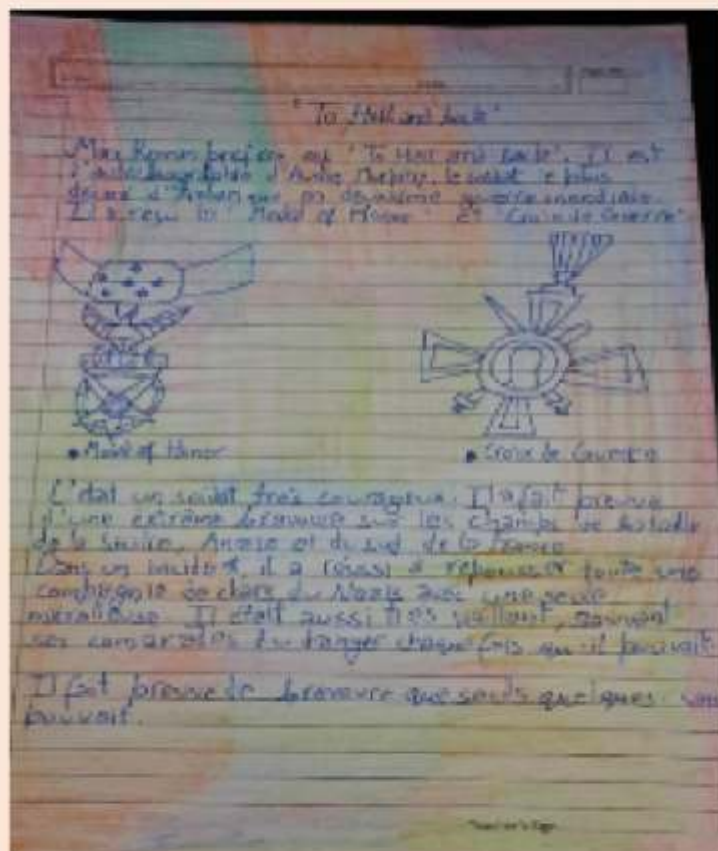 "To Hell and back"
Mon Roman préféré est "To Hell and back". Il est
l'autobiographie d'Audie Murphy, le soldat le plus
décoré d'Amérique en deuxième guerre mondiale.
Il a reçu la "Medal of Honor" et "Croix de Guerre"
• Medal of Honor
• Croix de Guerre
C'était un soldat très courageux. Il a fait preuve
d'une extrême bravoure sur les champs de bataille
de la Sicile, Anzio et du sud de la France
Dans un incident, il a réussi à repousser toute une
compagnie de chars du Nazis avec une seule
mitrailleuse. Il était aussi très vaillant, sauvant
ses camarades du danger chaque fois qu'il pouvait.
Il fait preuve de bravoure que seuls quelques
pouvait.
Teacher's Sign